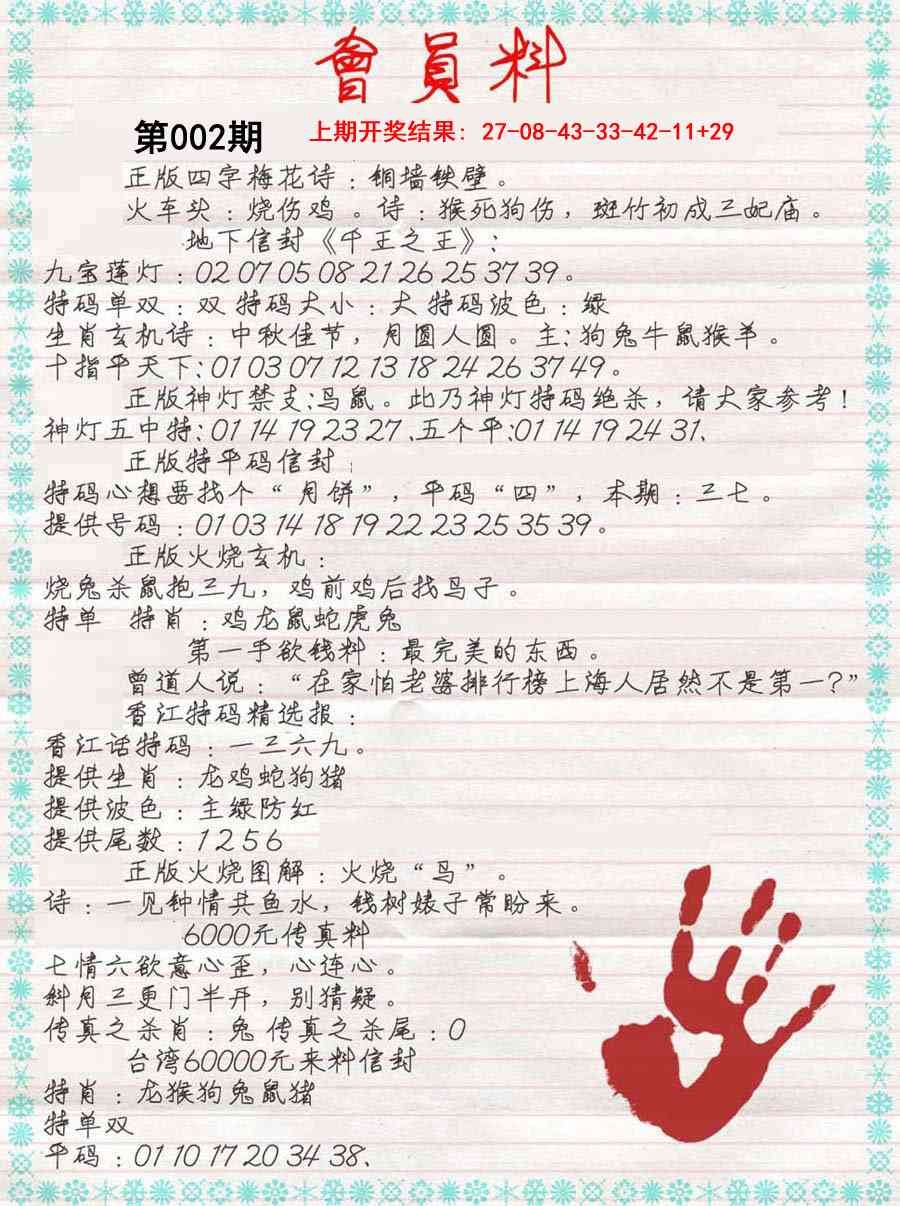 會員料
第002期 上期开奖结果: 27-08-43-33-42-11+29
正版四字梅花诗:铜墙铁壁。
火车头:烧伤鸡。诗:猴死狗伤,斑竹初成三妃庙。
地下信封《千王之王》:
九宝莲灯:02 07 05 08 21 26 25 37 39。
特码单双:双 特码大小:大 特码波色:绿
生肖玄机诗:中秋佳节,月圆人圆。主:狗兔牛鼠猴羊。
十指平天下:01 03 07 12 13 18 24 26 37 49。
正版神灯禁支:鸟鼠。此乃神灯特码绝杀,请大家参考!
神灯五中特:01 14 19 23 27、五个平:01 14 19 24 31、
正版特平码信封:
特码心想要找个“月饼”,平码“四”,本期:三七。
提供号码:01 03 14 18 19 22 23 25 35 39。
正版火烧玄机:
烧兔杀鼠抱三九,鸡前鸡后找鸟子。
特单 特肖:鸡龙鼠蛇虎兔
第一手欲钱料:最完美的东西。
曾道人说:“在家怕老婆排行榜上海人居然不是第一?”
香江特码精选报:
香江话特码:一三六九。
提供生肖:龙鸡蛇狗猪
提供波色:主绿防红
提供尾数:1 2 5 6
正版火烧图解:火烧“鸟”。
诗:一见钟情共鱼水,钱树婊子常盼来。
6000元传真料
七情六欲意心歪,心连心。
斜月三更门半开,别猜疑。
传真之杀肖:兔 传真之杀尾:0
台湾60000元来料信封
特肖:龙猴狗兔鼠猪
特单双
平码:01 10 17 20 34 38、